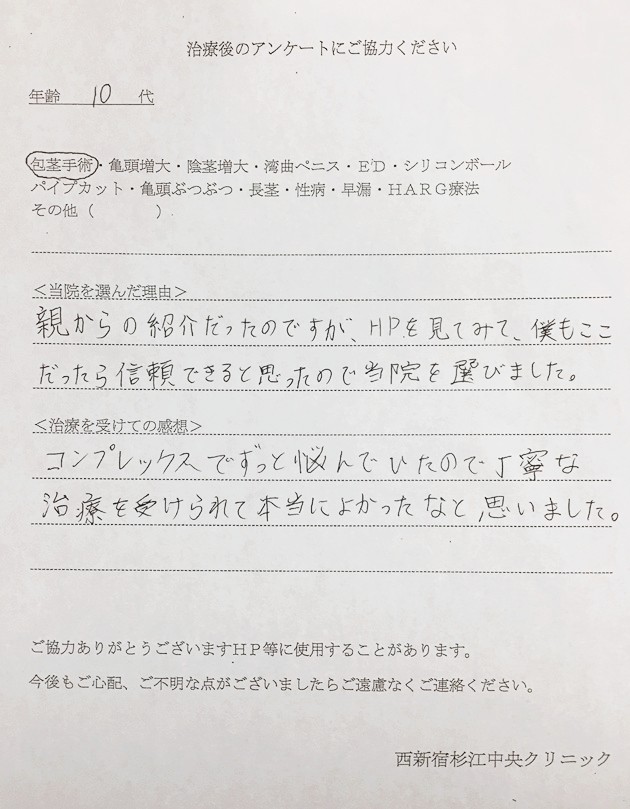 治療後のアンケートにご協力ください
年齢 10 代
包茎手術・亀頭増大・陰茎増大・湾曲ペニス・ED・シリコンボール
パイプカット・亀頭ぶつぶつ・長茎・性病・早漏・HARG療法
その他（　　　　）
＜当院を選んだ理由＞
親からの紹介だったのですが、HPを見てみて、僕もここ
だったら信頼できると思ったので当院を選びました。
＜治療を受けての感想＞
コンプレックスでずっと悩んでいたので丁寧な
治療を受けられて本当によかったなと思いました。
ご協力ありがとうございますHP等に使用することがあります。
今後もご心配、ご不明な点がございましたらご遠慮なくご連絡ください。
西新宿杉江中央クリニック